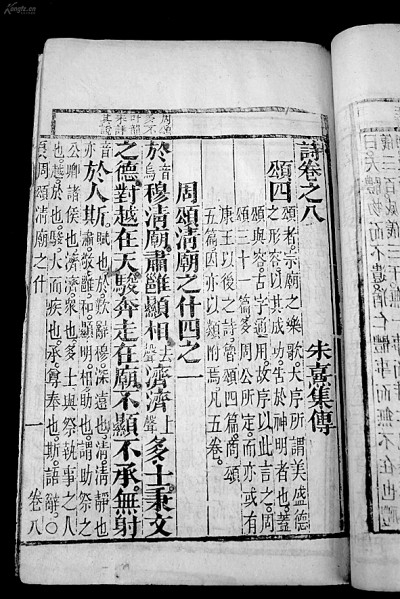 Kongfz.cn
周頌
多不
叶韻
未詳
其說
詩卷之八 朱熹集傳
頌四
頌者。宗廟之樂歌。大序所謂美盛德
之形容。以其成功告於神明者也。蓋
頌與容。古字通用。故序以此言之。周
頌三十一篇。多周公所定。而亦或有
康王以後之詩。魯頌四篇。商頌
五篇。因亦以類附焉。凡五卷。
周頌清廟之什四之一
於音烏穆清廟。肅雝顯相去聲濟濟上聲多士。秉文
之德。對越在天。駿奔走在廟。不顯不承。無射
音亦於人斯。
賦也。於。歎辭。穆。深遠也。清。清靜也。
肅。敬。雝。和。顯。明。相。助也。謂助祭之
公卿諸侯也。濟濟。衆也。多士。與祭執事之人
也。越。於也。駿。大而疾也。承。尊奉也。斯。語辭。○
周頌清廟之什 一 卷八